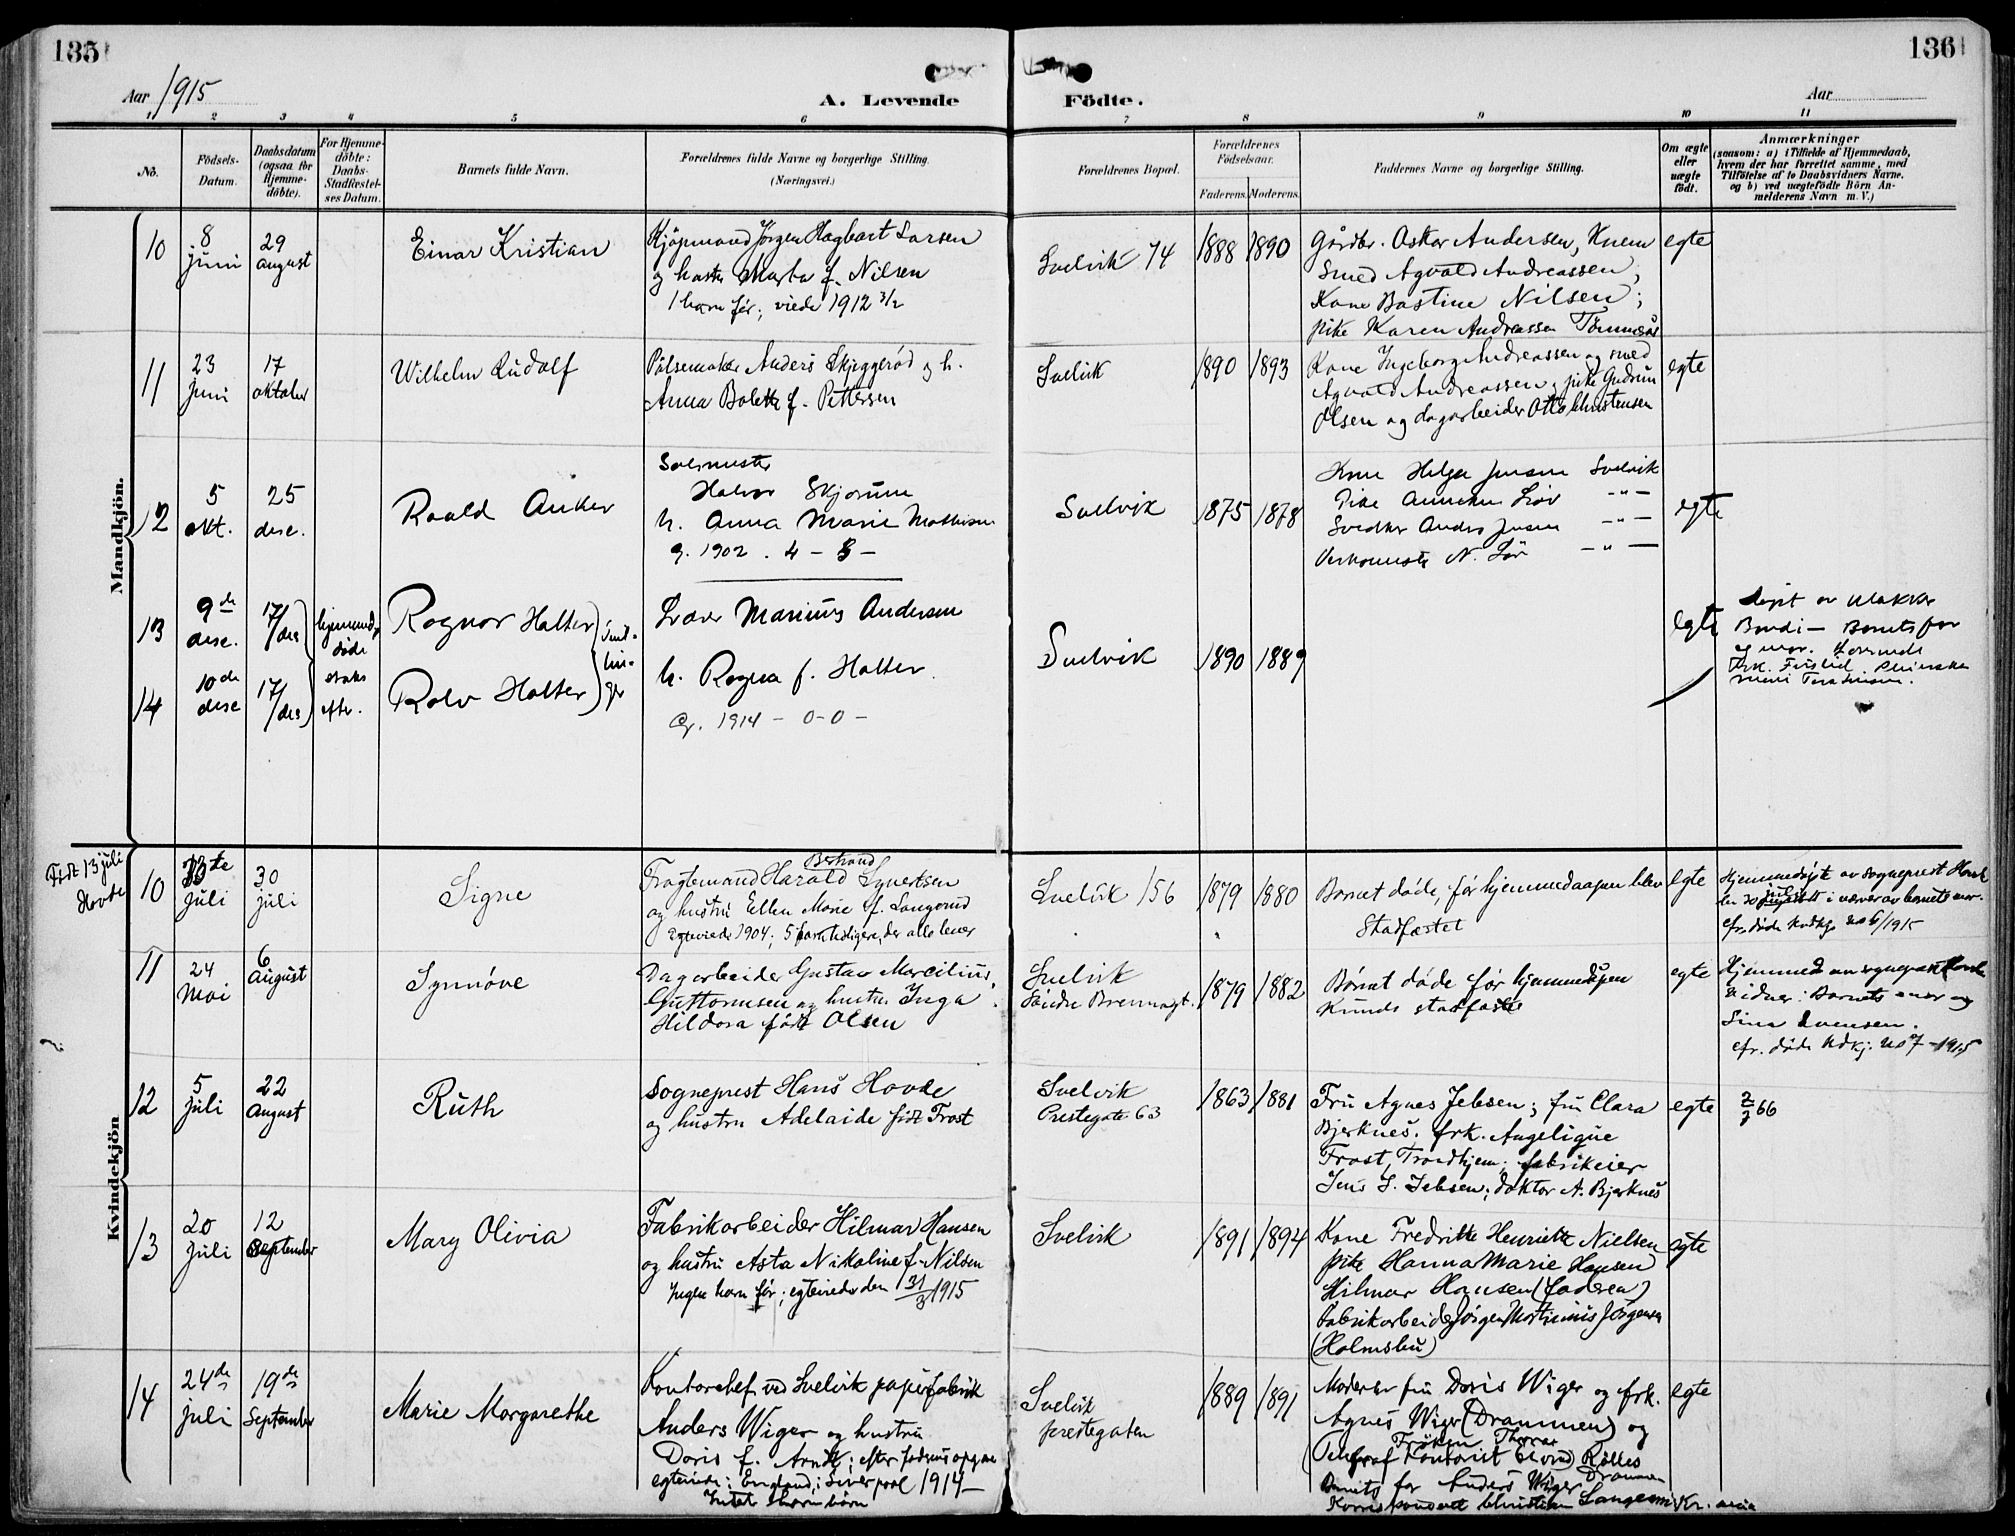 135
136
Aar 1915
A. Levende
Födte.
Aar
1 2 3 4 5 6 7 8 9 10 11
No.
Födsels-Datum.
Daabsdatum (ogsaa for Hjemme-döbte).
For Hjemme-döbte: Daabs-Stadfæstel-ses Datum.
Barnets fulde Navn.
Forældrenes fulde Navne og borgerlige Stilling.
(Næringsvei.)
Forældrenes Bopæl.
Forældrenes Födselsaar.
Faderens. Moderens.
Faddernes Navne og borgerlige Stilling.
Om ægte eller uægte födt.
Anmærkninger
(saasom: a) i Tilfælde af Hjemmedaab, hvem der har forrettet samme, med Tilföielse af to Daabsvidners Navne, og b) ved uægtefödte Börn Anmelderens Navn m. V.)
Mandkjön.
10
8 juni
29 august
Einar Kristian
Kjøpmand Jørgen Hagbart Larsen
og hustr Marta f. Nilsen
1 barn før; viede 1912 3/2
Svelvik 74
1888 1890
Gårdbr. Oskar Andersen, Knem
Smed Agvald Andreassen;
Kone Bastine Nilsen;
pike Karen Andreassen Tømmerås
egte
11
23 juni
17 oktober
Wilhelm Rudolf
Pølsemaker Anders Skjeggerød og h.
Anna Bolette f. Pettersen
Svelvik
1890 1893
Kone Ingeborg Andreassen og smed
Agvald Andreassen, pike Gudrun
Olsen og dagarbeider Otto Christensen
egte
12
5 okt.
25 desc.
Roald Anker
Halvor Skjorum
h. Anna Marie Mathisen
g. 1902 . 4 – 3 –
Svelvik
1875 1878
Kone Helga Jensen Svelvik
Pike
Anders Jensen – " –
N. – " –
egte
13
9de desc.
17/des
hjemmed.
døde
straks
efter.
Ragnar Halter
Tvil-
lin-
ger
Marinus Andersen
14
10de desc
17/des
Rolv Halter
h. Ragna f. Halter.
g. 1914 – 0 – 0 –
Svelvik
1890 1889
egte
døpt av
Barnets far
og mor.
Kvindekjön
Født 13 juli
Hovde
10
13de juli
30 juli
Signe
Bertrand
Fragtemand Harald Syvertsen
og hustru Ellen Marie f. Langerud
Egteviede 1904; 5 barn tidligere, der alle lever
Svelvik 156
1879 1880
Barnet døde, før hjemmedaapen blev
Stadfæstet
egte
Hjemmedøpt av sogneprest Hovde
den 30 juli i nærvær av barnets mor.
cfr. døde Kvdkj. no 6/1915
11
24 Mai
6 August
Synnøve
Dagarbeider Gustav Marcilius
Guttormsen og hustru Inga
Hildora født Olsen
Svelvik
Søndre Brennagt.
1879 1882
Barnet døde før hjemmedåpen
kunde stadfæstes
egte
Hjemmed av sogneprest Hovde
Vidner: Barnets mor og
Lina Svensen.
cfr. døde Kdkj. no 7 – 1915
12
5 juli
22 August
Ruth
Sogneprest Hans Hovde
og hustru Adelaide født Frost
Svelvik
Prestegate 63
1863 1881
Fru Agnes Jebsen; fru Clara
Bjerknes, frk. Angelique
Frost, Trondhjem; fabrikeier
Jens S. Jebsen; doktor A. Bjerknes
egte
2/7 66
13
20 juli
12 September
Mary Olivia
Fabrikarbeider Hilmar Hansen
og hustru Asta Nikoline f. Nilsen
Ingen barn før; egteviede den 31/3 1915
Svelvik
1891 1894
Kone Fredrikke Henriette Nielsen
pike Hanna Marie Hansen
Hilmar Hansen (faderen)
fabrikarbeider Jørgen Martinius Jørgensen
(Holmsbu)
egte
14
24de juli
19de September
Marie Margarethe
Kontorchef ved Svelvik papirfabrik
Anders Wiger og hustru
Doris f. Arndt; efter faderens opgave
egteviede i England, i Liverpool 1914 –
Intet barn før
Svelvik
prestegaten
1889 1891
Moderen fru Doris Wiger og frk.
Agnes Wiger (Drammen) og
Frøken Thora
Kontorist Rolles
Drammen
Barnets far Anders Wiger
Korrespondent Christian Kr.ania
egte